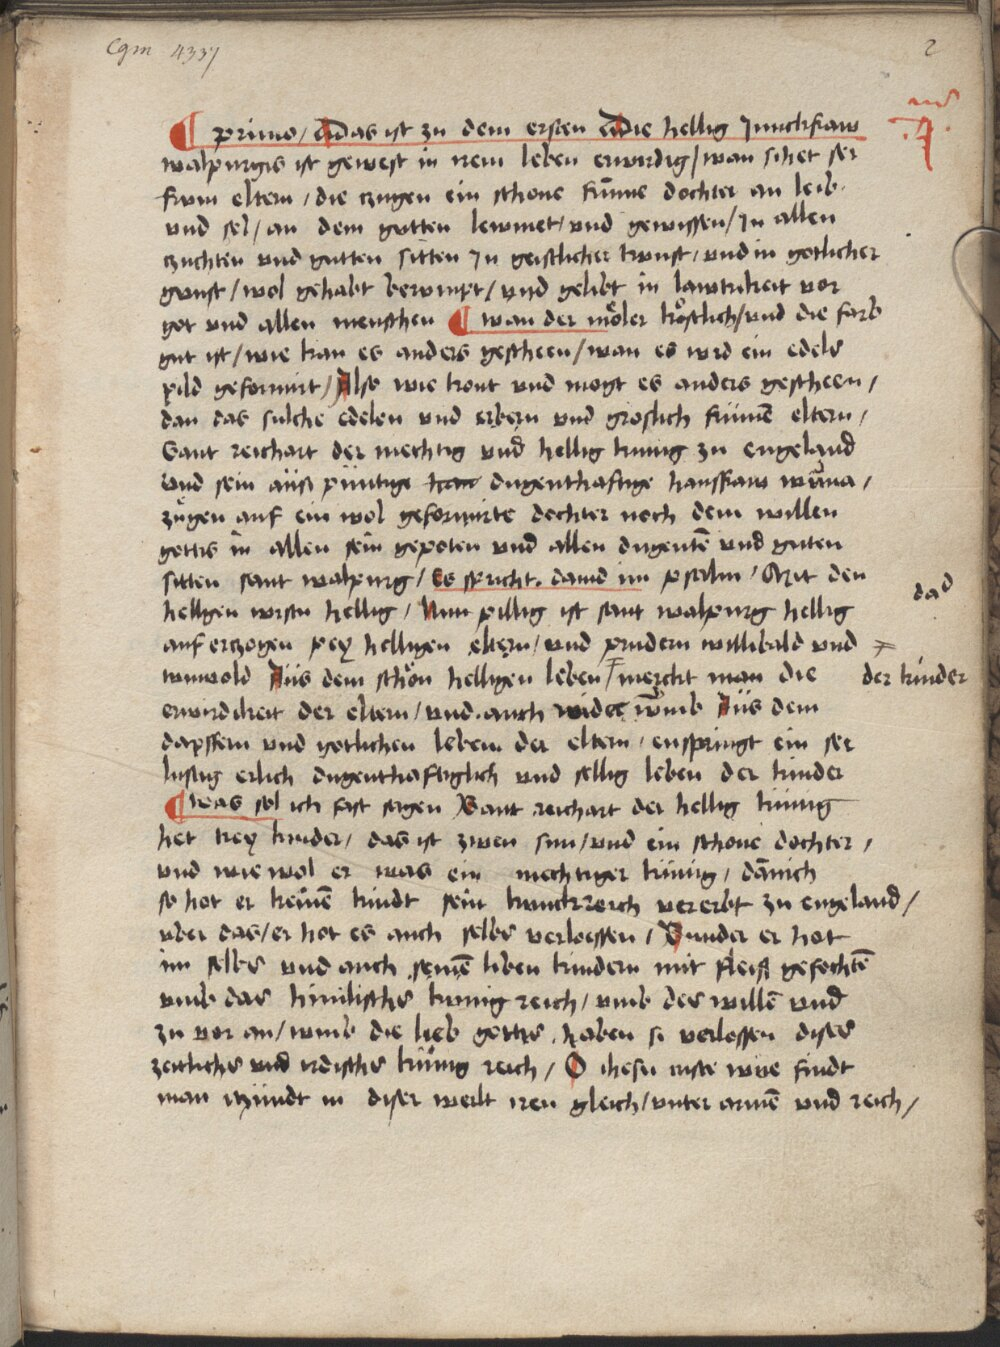 Cgm 4337
2
¶ primo / Das ist zu dem ersten Die hellig Junckfraw
walpurgis ist gewest in irem leben erwirdig / wan si het ser
frum eltern / die czugen ein schone frume dochter an leib
vnd sel / an dem gutten lewmet / vnd gewissen / In allen
czuchten vnd gutten sitten In geistlicher kunst / vnd in gotlicher
gunst / wol gehabt vnd gelibt in lawtrikeit vor
got vnd allen menschen ¶ wan der möler köstlich / vnd die farb
gut ist / wie kan es anders gescheen / wan es wird ein edels
pild geformirt / Also wie kont vnd mogt es anders gescheen /
dan das sulche edelen vnd erbern vnd gröslich frume eltern /
Sant reichart der mechtig vnd hellig kunig zu engeland
vnd sein dugenthaftige hausfraw wuna /
zugen auf ein wol geformirte dochter noch dem willen
gottis in allen sein gepoten vnd allen dugentē vnd guten
sitten sant walpurg / Es spricht dauid im psalm / Mit den
helligen wirstu hellig / Nun pillig ist sant walpurg hellig
dad
auf erczogen pey helligen eltern / vnd prudern willibald vnd
wunibold Aus dem schön helligen leben / merckt man die
der kinder
erwirdikeit der eltern / vnd auch wider vmb Aus dem
dapffern vnd gotlichen leben der eltern / enspringt ein ser
lustig erlich dugenthaftiglich vnd sellig leben der kinder
¶ was sol ich fast sagen Sant reichart der hellig künig
het trey kinder / das ist zwen sun / vnd ein schone dochter /
vnd wie wol er was ein mechtiger künig / dānoch
so hot er keinē kindt sein kunckreich vererbt zu engeland /
vber das / er hot es auch selbs verlossen / Sunder er hot
im selbs vnd auch seinē liben kindern mit fleiss gefochtē
vmb das himlischs kunig reich / vmb des willē vnd
zu vor an / vmb die lieb gottis haben si verlossen dises
zeitlichs vnd irdischs künig reich / O ihesu criste wue findt
man iczündt in diser werlt iren gleich / vnter armē vnd reich /